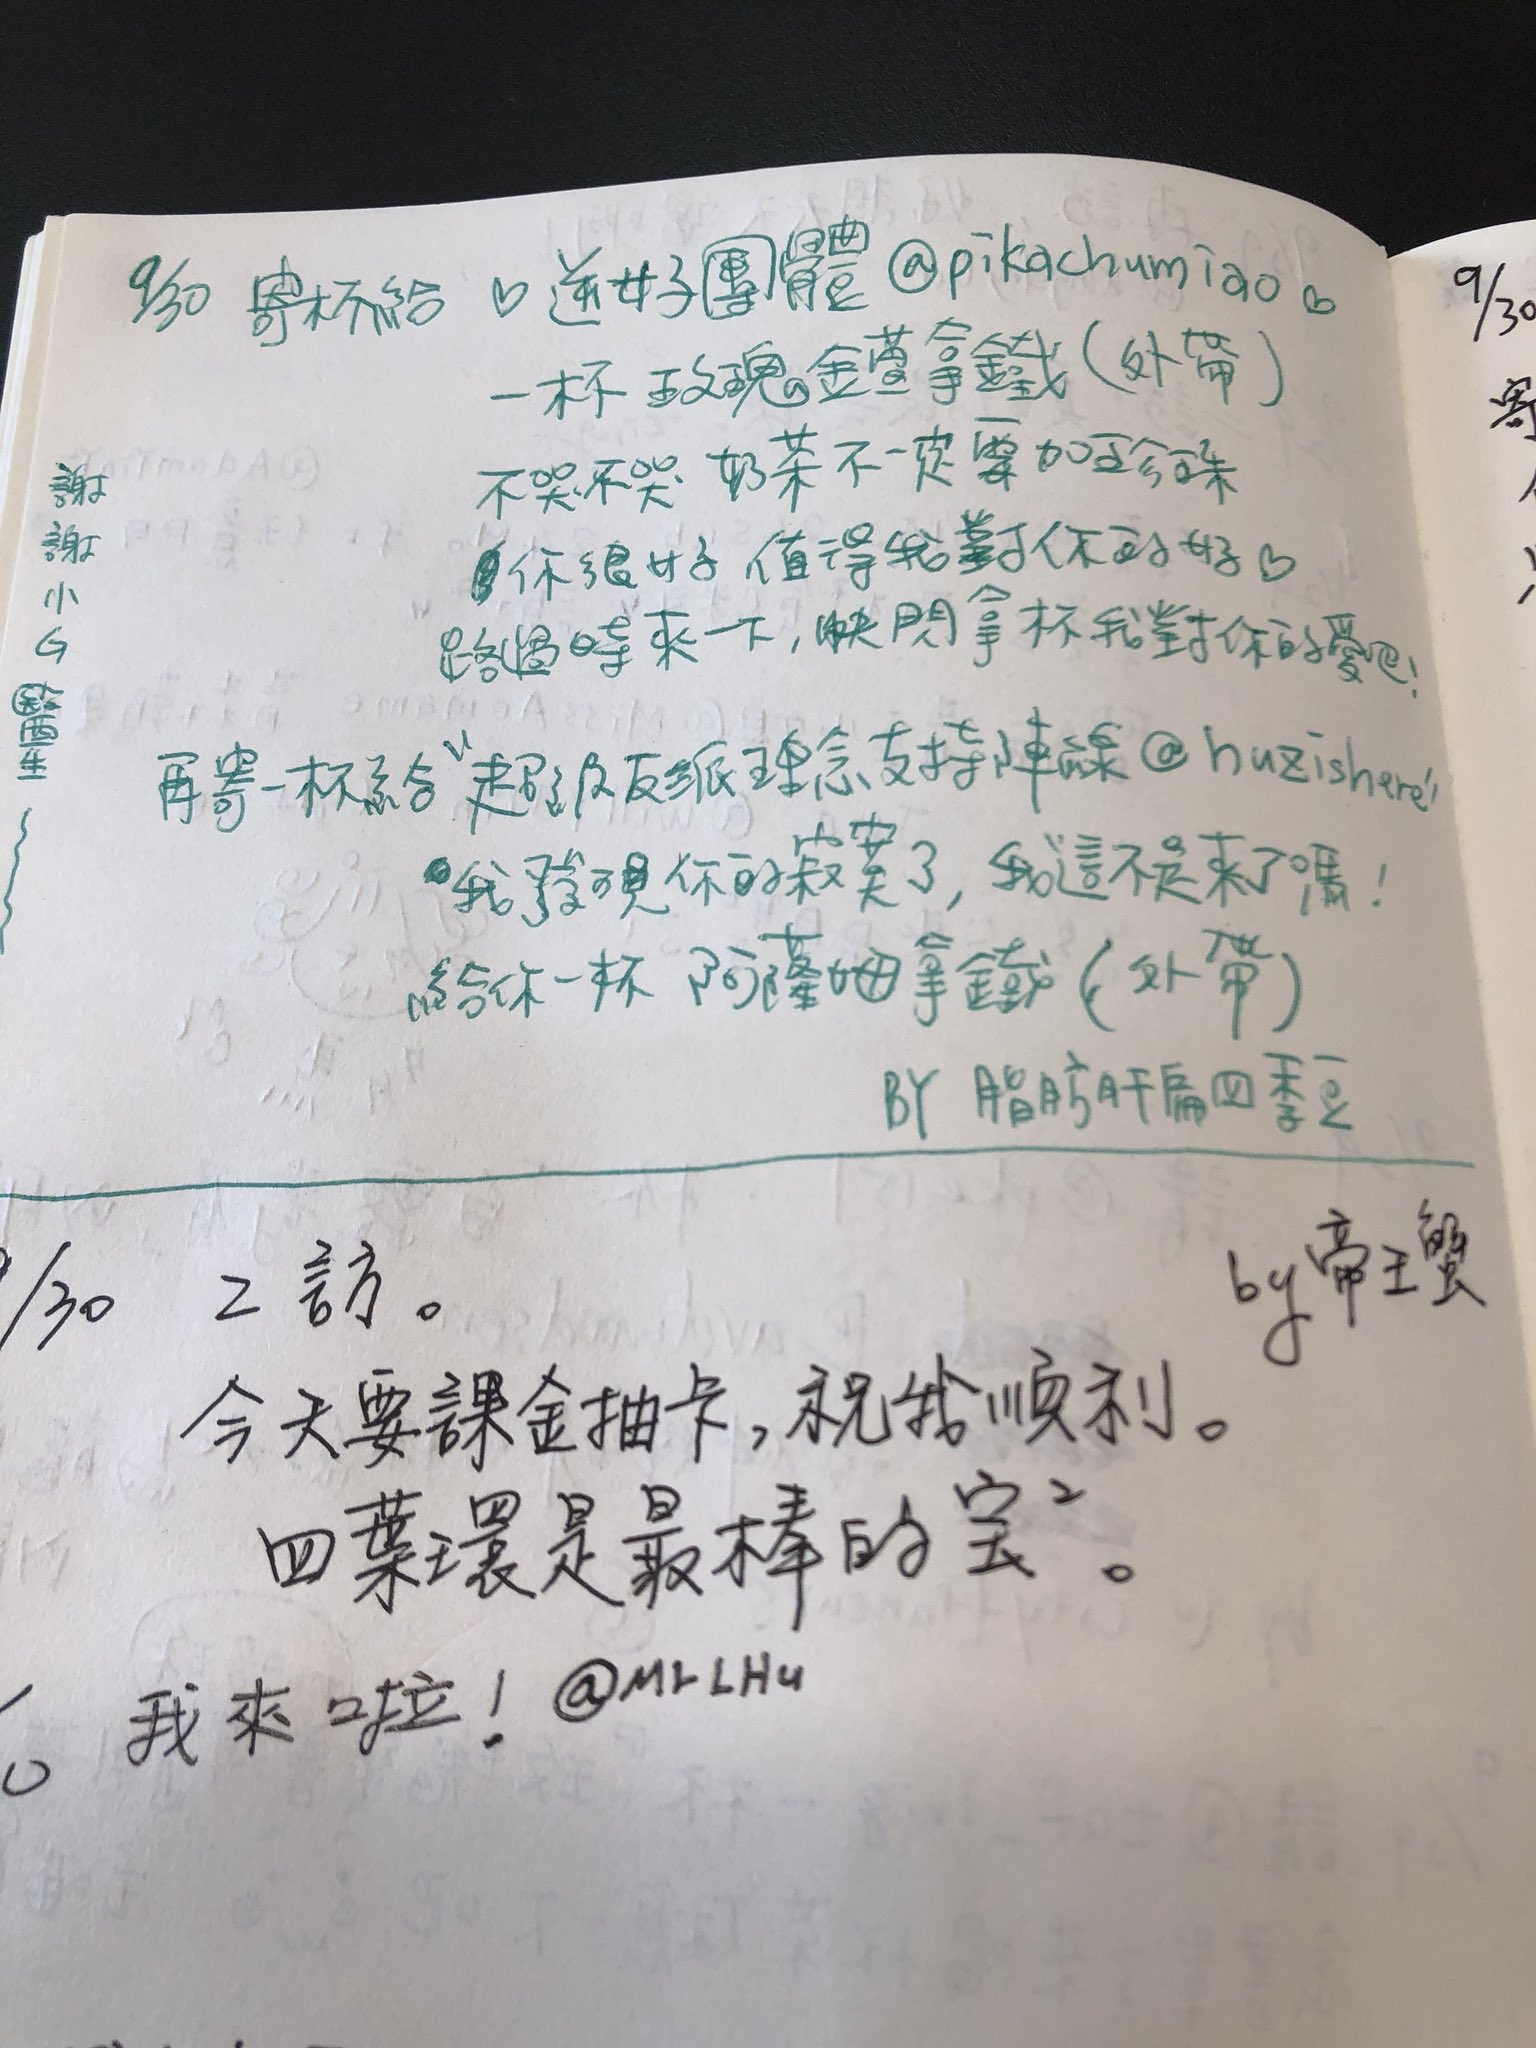 9/30 寄杯給 ♡逆好團體 @pikachumiao♡
一杯 玫瑰金萱拿鐵(外帶)
不哭不哭 奶茶不一定要加珍珠
你很好 值得我對你的好♡
路過時來一下,快閃拿杯我對你的愛吧!
再寄一杯給"超級反紙理念支持陣線@huzishere"
我發現你的寂寞了,我這不是來了嗎!
給你一杯 阿薩姆拿鐵(外帶)
BY 脂肪肝扁四季豆
謝謝小G醫生
9/30 2訪。
by帝王蟹
今天要課金抽卡,祝我順利。
四葉環是最棒的宝²。
我來啦! @MrLHu
9/30
寄